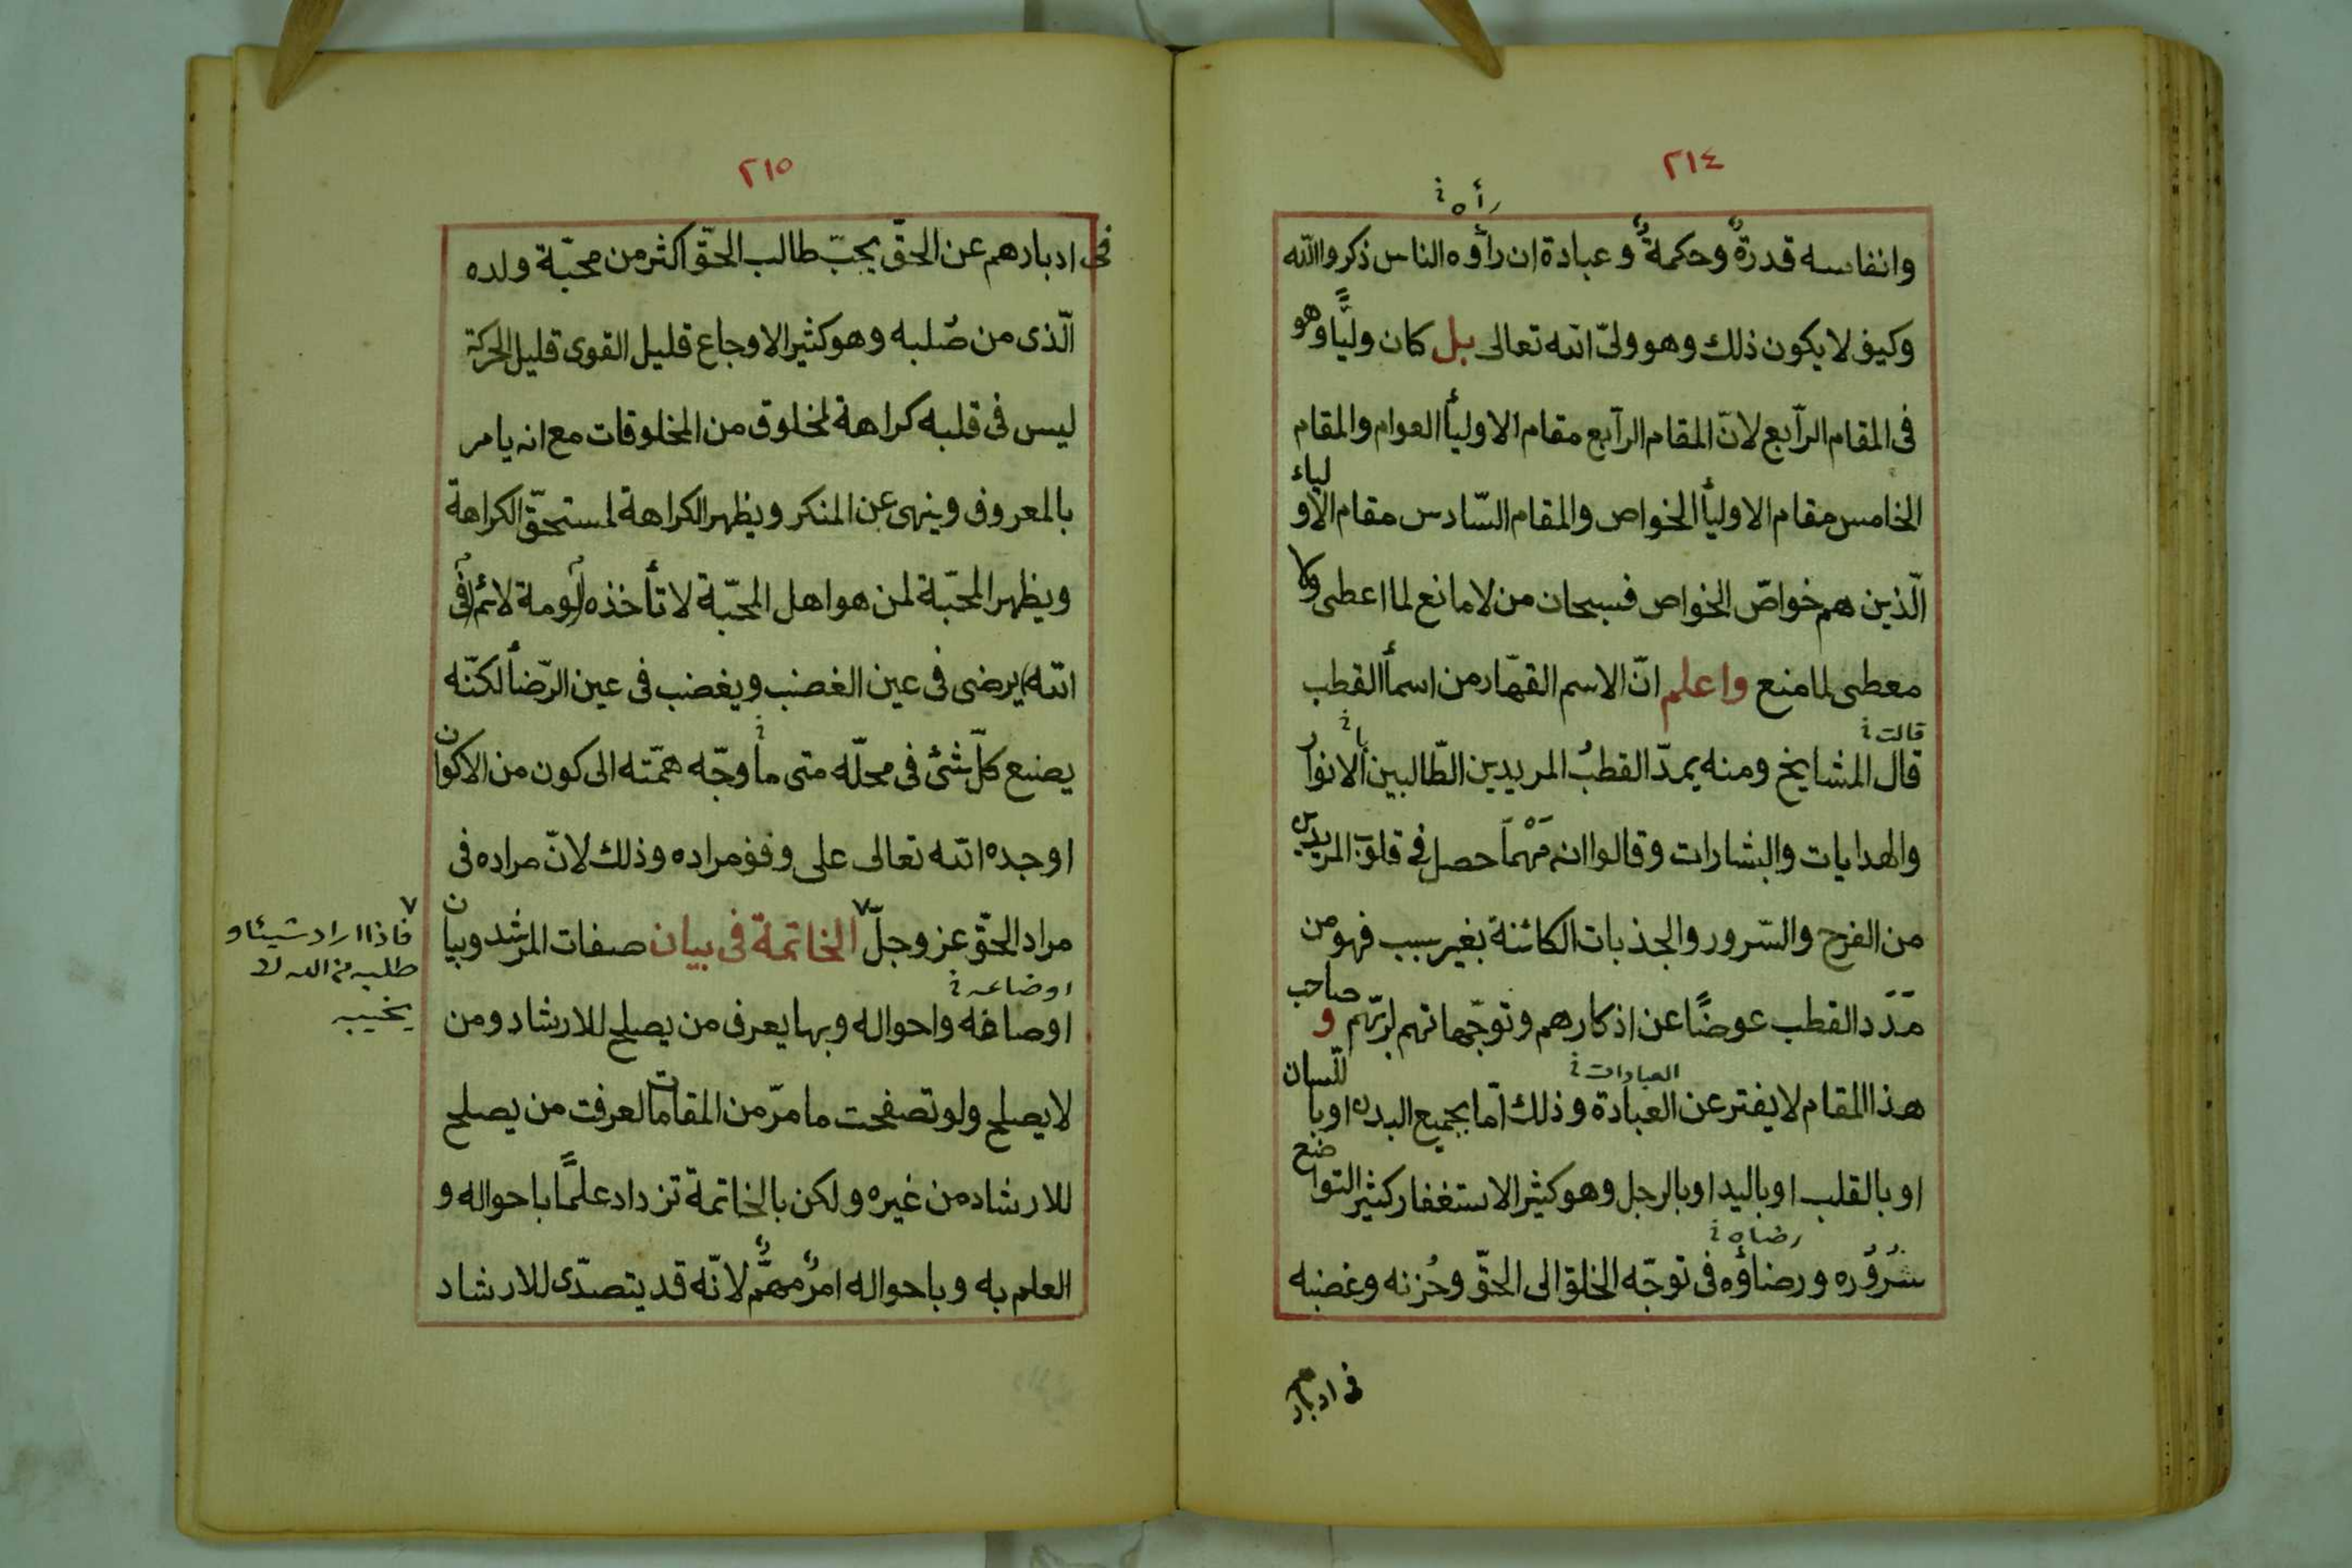 ٢١٤
رأه خ
وانفاسه قدرةٌ وحكمةٌ وعبادة ان رأوه الناس ذكروا الله
وكيف لا يكون ذلك وهو ولىّ الله تعالى بل كان وليًّا وهو
فى المقام الرّابع لانّ المقام الرابع مقام الاولياأ العوام والمقام
الخامس مقام الاولياأ الخواص والمقام السّادس مقام الاولياء
الّذين هم خواصّ الخواص فسبحان من لا مانع لما اعطى ولا
معطى لما منع واعلم انّ الاسم القهّار من اسماأ القطب
قالت خ
با خ
قال المشايخ ومنه يمدّ القطبُ المريدين الطّالبين الانوار
والهدايات والبشارات وقالوا انه مَهْمَا حصل فى قلوب المريدين
من الفرح والسّرور والجذبات الكائنة بغير سبب فهو من
مَدَد القطب عوضًا عن اذكارهم وتوجّهاتهم لربّهم وصاحب
العبادات خ
هذا المقام لا يفتر عن العبادة وذلك امّا بجميع البدن او باللّسان
او بالقلب او باليد او بالرجل وهو كثير الاستغفار كثير التواضع
رضاه خ
سُرُوْره ورضاؤه فى توجّه الخلق الى الحقّ وحُزنه وغضبه
فى ادبارهم
٢١٥
فى ادبارهم عن الحقّ يحبّ طالب الحقّ اكثر من محبّة ولده
الّذى من صُلبه وهو كثير الاوجاع قليل القوى قليل الحركة
ليس فى قلبه كراهة لمخلوق من المخلوقات مع انه يامر
بالمعروف وينهى عن المنكر ويظهر الكراهة لمستحقّ الكراهة
ويظهر المحبّة لمن هو اهل المحبّة لا تأخذه لومة لائم (فى
الله) يرضى فى عين الغضب ويغضب فى عين الرّضاأ لكنّه
يصنع كلّ شئ فى محلّه متى ما وجّه همّته الى كون من الاكوان
اوجده الله تعالى على وفق مراده وذلك لانّ مراده فى
مراد الحقّ عز وجلّ ٧ الخاتمة فى بيان صفات المرشد وبيان
٧ فاذا اراد شيئا و
طلبه من الله لا
يخيبه
اوضاعه خ
اوصافه واحواله وبها يعرف من يصلح للارشاد ومن
لا يصلح ولو تصفحت ما مرّ من المقامات لعرفت من يصلح
للارشاد من غيره ولكن بالخاتمة تزداد علمًا باحواله و
العلم به وباحواله امرٌ مهمٌّ لانّه قد يتصدّى للارشاد